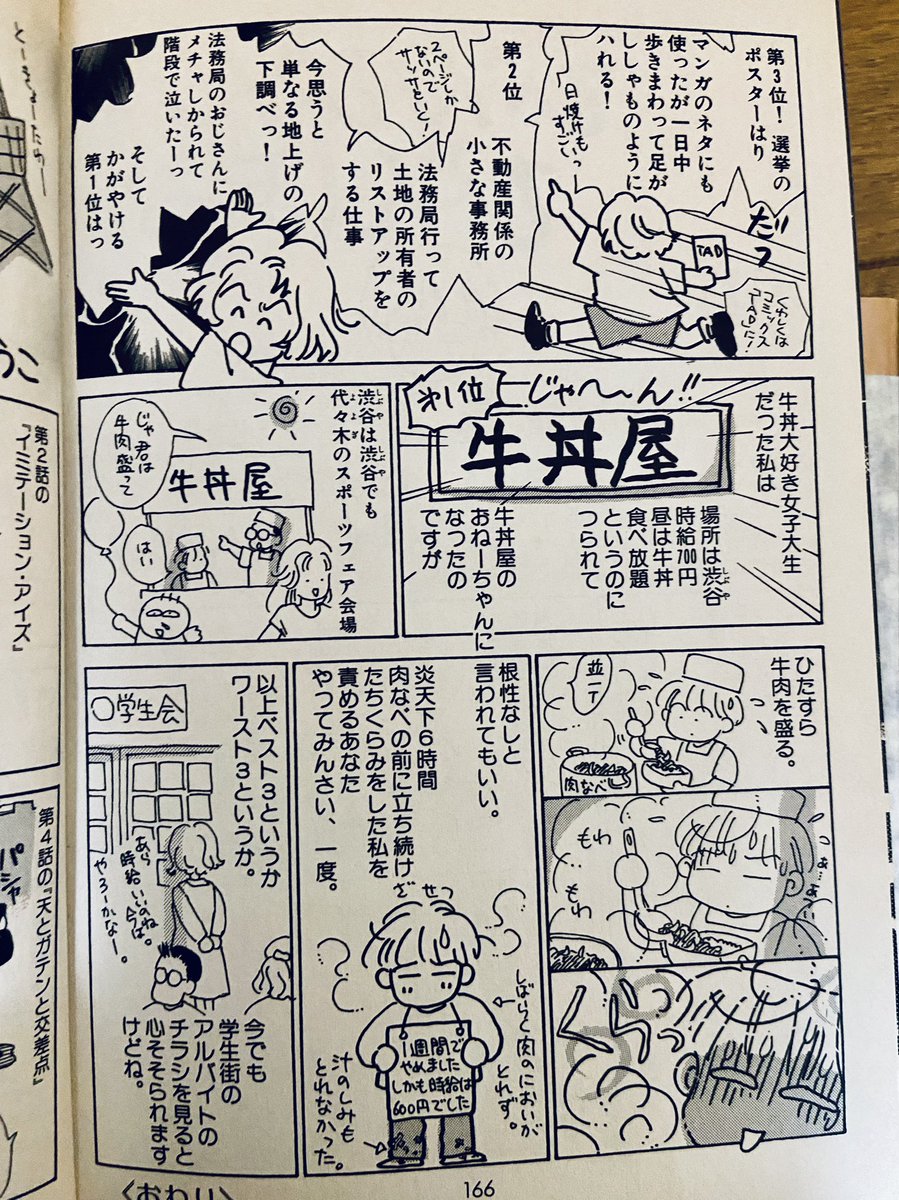 第3位!選挙の
ポスターはり
マンガのネタにも
使ったが一日中
歩きまわって足が
ししゃものように
ハれる!
日焼けもいっ
すごい
だっ
TAD
くわしくは
コミックス
「TAD」に!
第2位
2ページしか
ないので
サッサといく!
不動産関係の
小さな事務所
法務局行って
土地の所有者の
リストアップを
する仕事
今思うと
単なる地上げの
下調べっ!
法務局のおじさんに
メチャしかられて
階段で泣いたーっ
そして
かがやける
第1位はっ
牛丼大好き女子大生
だった私は
第1位
じゃ〜〜ん!!
牛丼屋
場所は渋谷
しぶや
時給700円
昼は牛丼
食べ放題
というのに
つられて
牛丼屋の
おねーちゃんに
なったの
ですが
渋谷は渋谷でも
しぶや
しぶや
代々木のスポーツフェア会場
よよぎ
じゃ君は
牛肉盛って
牛丼屋
はい
ひたすら
牛肉を盛る。
並一丁
肉なべ
もわ
もわ
くらっ
根性なしと
言われてもいい。
炎天下6時間
肉なべの前に立ち続け
たちくらみをした私を
責めるあなた
やってみんさい、一度。
ざせつ
しばらく肉のにおいが
とれず。
1週間で
やめました
しかも時給は
600円でした
汁のしみも
とれなかった。
以上ベスト3というか
ワースト3というか。
○学生会
あら
時給いいのね。
今は。
やろーかなー。
今でも
学生街の
アルバイトの
チラシを見ると
心そそられます
けどね。
〈おわり〉
166
とーきょーたわー
うこ
第2話の
『イミテーション・アイズ』
第4話の『天とガテンと交差点』
パシャ